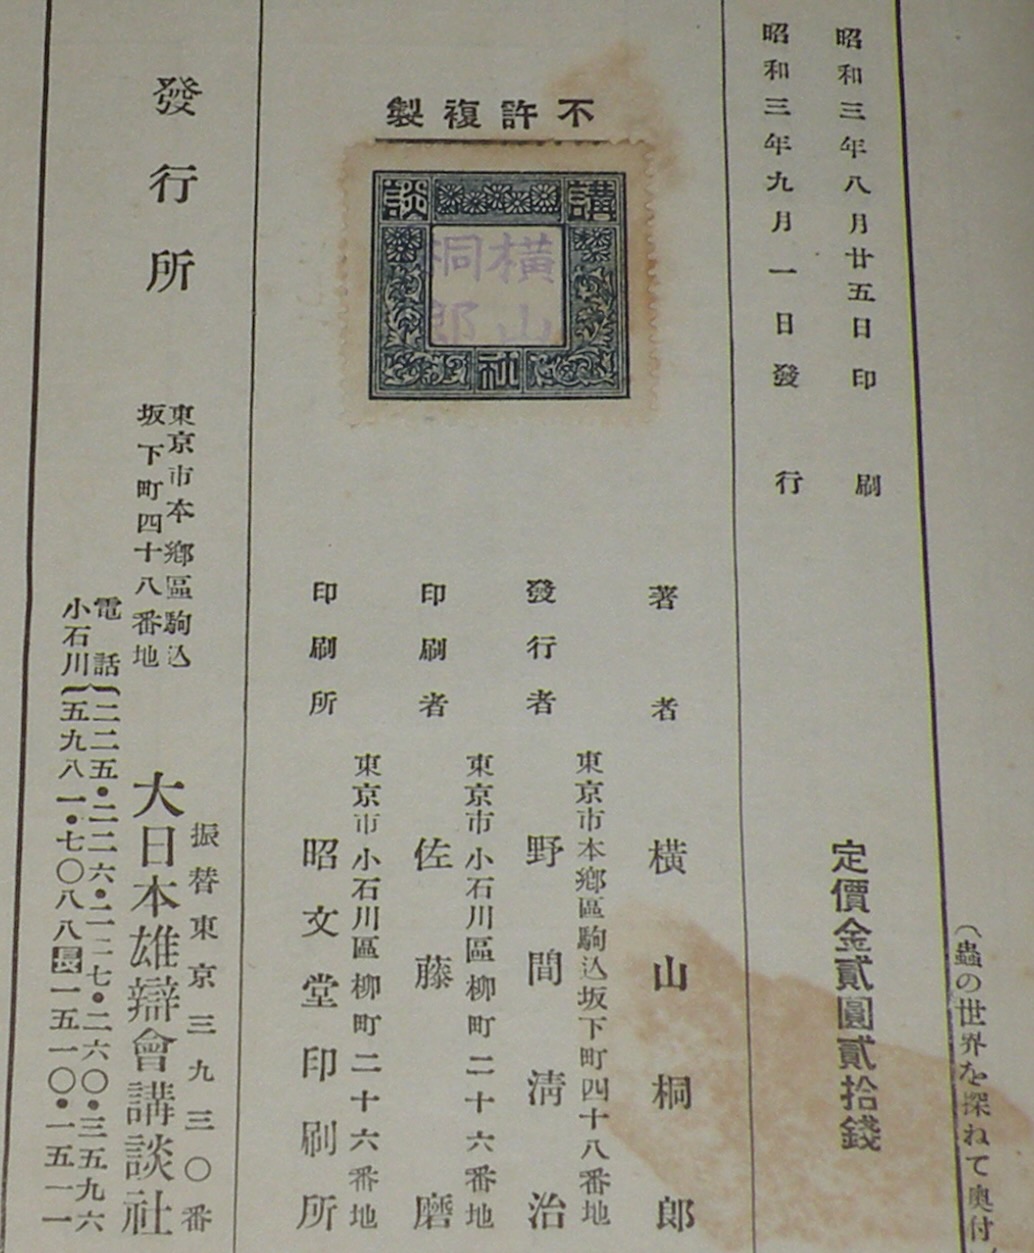 (蟲の世界を探ねて奥付)
昭和三年八月廿五日印刷
昭和三年九月一日發行
定價金貳圓貳拾錢
不許複製
講談社
横山桐郎
著者 横山桐郎
東京市本鄉區駒込坂下町四十八番地
發行者 野間淸治
東京市小石川區柳町二十六番地
印刷者 佐藤磨
東京市小石川區柳町二十六番地
印刷所 昭文堂印刷所
發行所
東京市本鄉區駒込
坂下町四十八番地
振替東京三九三〇番
大日本雄辯會講談社
電話
小石川
二二五・二二六・二二七・二六〇・三五九六
五九八一・七〇八八長一五一〇・一五一一